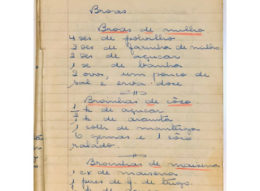 Broas.
Broas de milho
4 xs de polvilho
2 xs de farinha de milho
2 xs de açucar
1 x de banha
3 ovos, um pouco de
sal e erva-doce
Broinhas de côco
1/2 k de açucar
1/2 k de araruta
1 colh de manteiga
6 gemas e 1 côco
ralado.
Broinhas de maisena
1 cx de maisena
1 pires de f. de trigo.